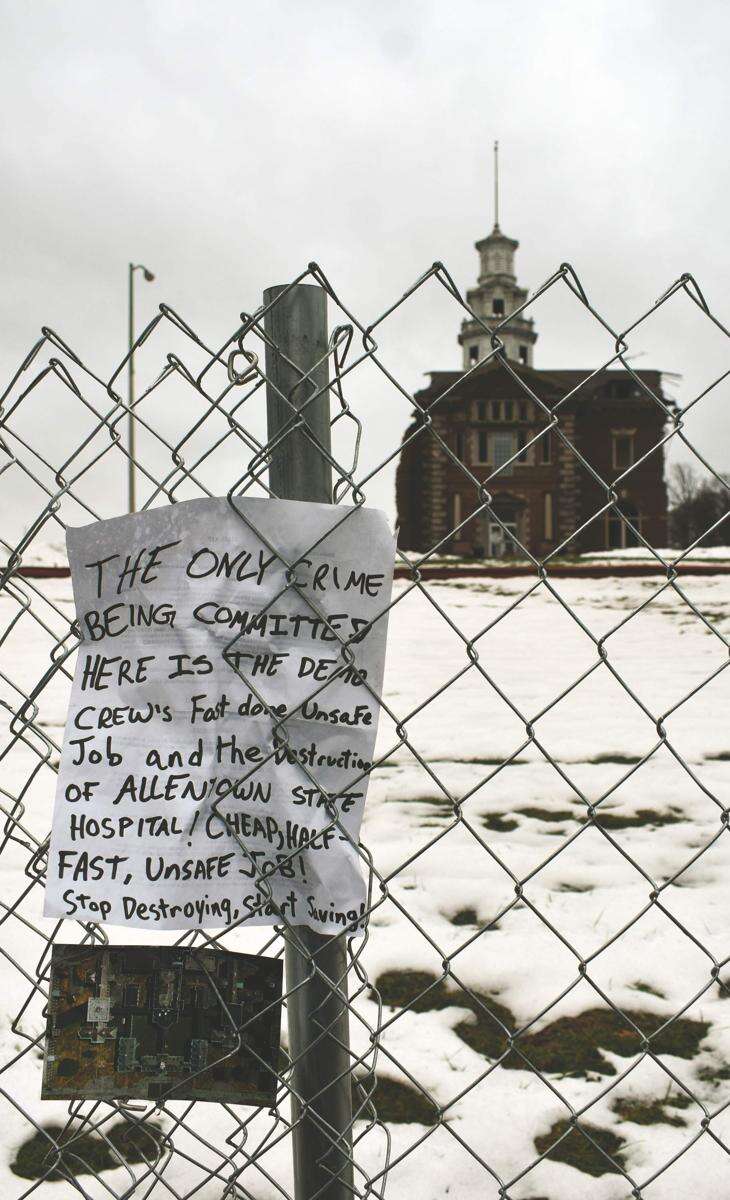 THE ONLY CRIME
BEING COMMITTED
HERE IS THE DEMO
CREW'S Fast done Unsafe
Job and the Destruction
OF ALLENTOWN STATE
HOSPITAL! CHEAP, HALF-
FAST, UNSAFE JOB!
Stop Destroying, Start Saving!